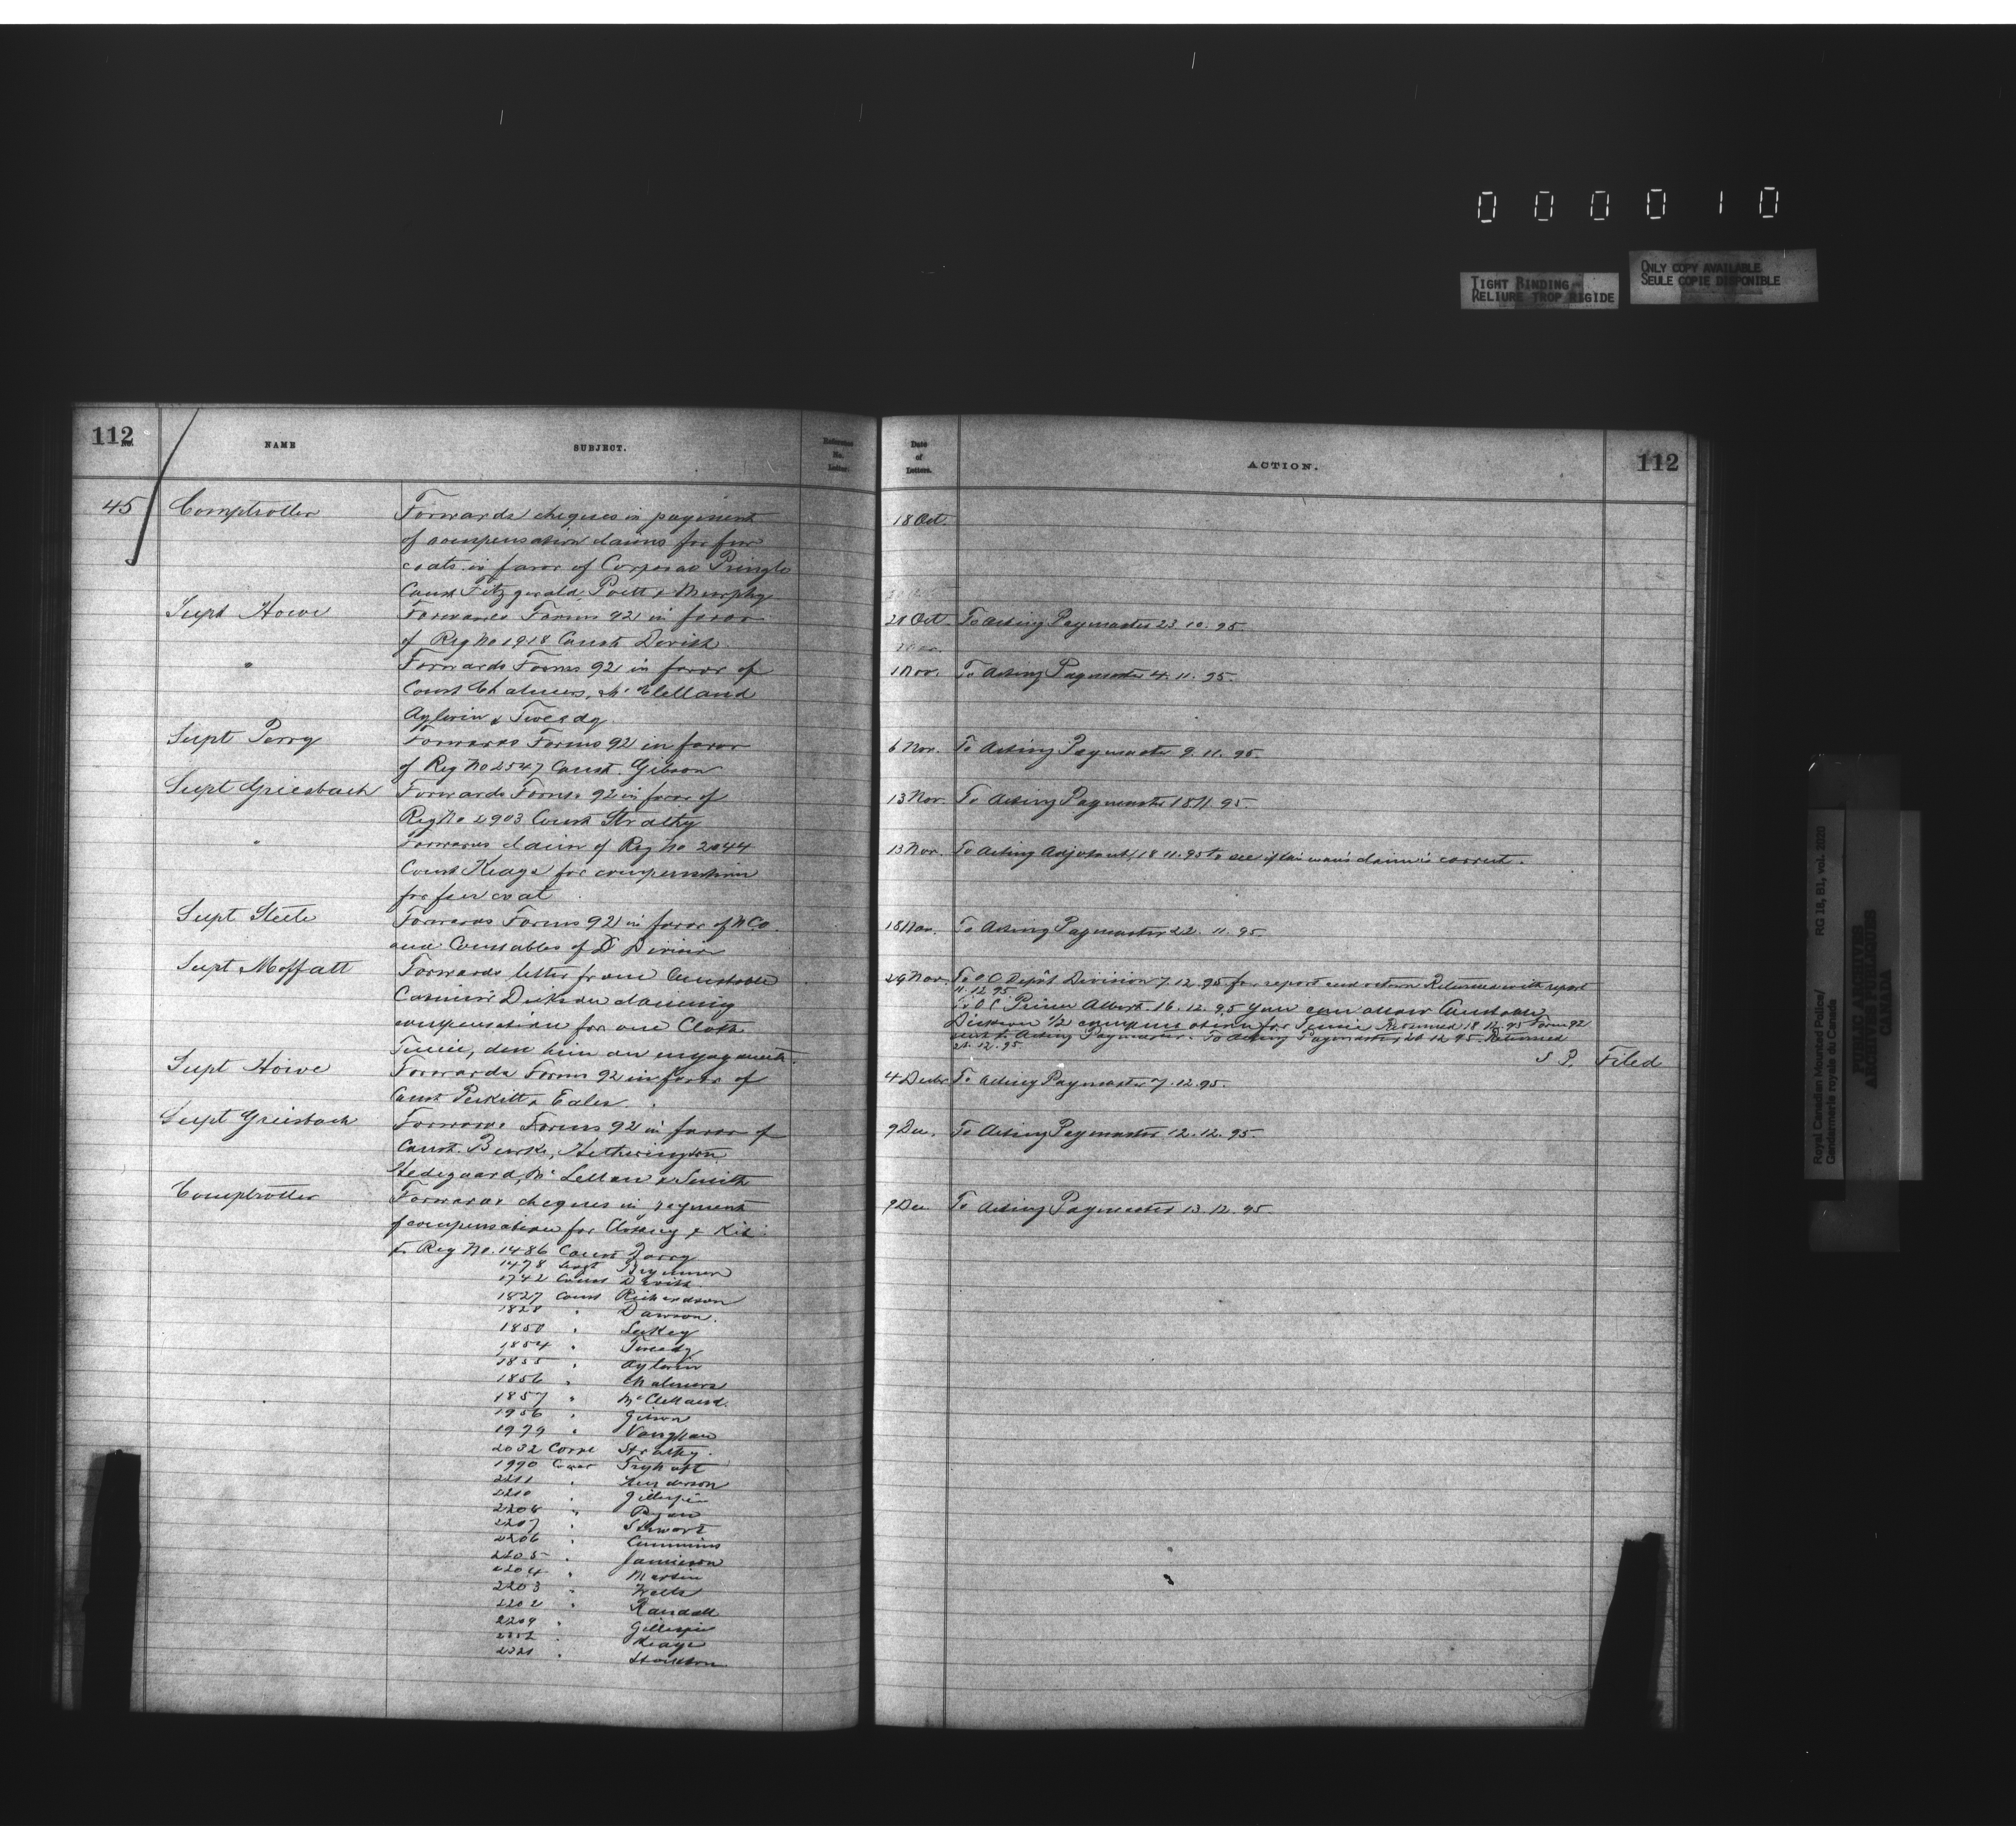 0 0 0 0 1 0
TIGHT BINDING
RELIURE TROP RIGIDE
ONLY COPY AVAILABLE
SEULE COPIE DISPONIBLE
112
No.
NAME
SUBJECT.
Reference No. Letter.
Date of Letters.
ACTION.
112
45
Comptroller
Forwards cheques in payment
of compensation claims for fur
coats in favor of Corporal Pringle
Const Fitzgerald, Poett & Murphy
18 Oct.
Supt Howe
Forwards Forms 92 in favor
of Reg No 1918 Const Devish
21 Oct. To Acting Paymaster 23.10.95.
"
Forwards Forms 92 in favor of
Const Chalmers, McClelland
Aylwin & Tweedy
1 Nov. To Acting Paymaster 4.11.95.
Supt Perry
Forwards Forms 92 in favor
of Reg No 2547 Const. Gibson
6 Nov. To Acting Paymaster 9.11.95.
Supt Griesbach
Forwards Forms 92 in favor of
Reg No 2903 Const Strathy
13 Nov. To Acting Paymaster 18 11.95.
"
Forwards claim of Reg No 2044
Const Keays for compensation
for fur coat
13 Nov. To Acting Adjutant, 18 11.95 to see if this man's claim is correct.
Supt Steele
Forwards Forms 92 in favor of N Co.
and Constables of D Division
18 Nov. To Acting Paymaster 22.11.95.
Supt Moffatt
Forwards letter from Constable
Dickson claiming
compensation for one Cloth
Tunic, due him on engagement.
29 Nov. To O C Depôt Division 7.12.95 for report and return Returned with report
11.12.95
To O C Prince Albert 16.12.95 You can allow Constable
Dickson 1/2 compensation for Tunic Returned 18 12.95 Form 92
sent to Acting Paymaster. To Acting Paymaster, 21 12 95. Returned
21.12.95.
S P. Filed
Supt Howe
Forwards Forms 92 in favor of
Const Perkitt & Eales.
4 Decbr To Acting Paymaster 7.12.95.
Supt Griesbach
Forwards Forms 92 in favor of
Const. Burke, Hetherington
Hedegaard, McLellan & Smith
9 Dec. To Acting Paymaster 12.12.95.
Comptroller
Forwards cheques in payment
of compensation for Clothing & Kit
to Reg No. 1486 Const Barry
9 Dec To Acting Paymaster 13.12.95.
1478 Sergt Brymner
1742 Const Devish
1827 Const Richardson
1828 " Dawson.
1850 " Leckey
1854 " Tweedy
1855 " Aylwin
1856 " Chalmers
1857 " McClelland.
1956 " Gibson
1979 " Vaughan
2032 Corpl Strathy.
1990 Const
2211 " Henderson
2210 " Gillespie
2208 " Ryan
2207 " Stewart
2206 " Cummins
2205 " Jamieson
2204 " Martin
2203 " Wells
2202 " Randall
2209 " Gillespie
" Keays
2321 " Stockton
Royal Canadian Mounted Police/
Gendarmerie royale du Canada
RG 18, B1, vol. 2020
PUBLIC ARCHIVES
ARCHIVES PUBLIQUES
CANADA